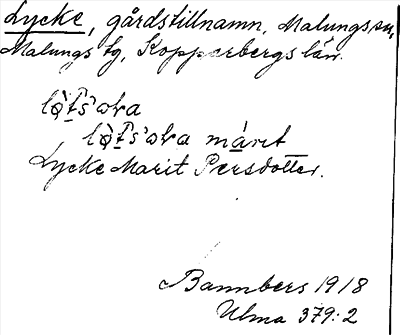 Lycke, gårdstillnamn, Malungs sn,
Malungs tg, Kopperbergs län.
Lycke Marit Persdotter.
Bannbers 1918
Ulma 379:2